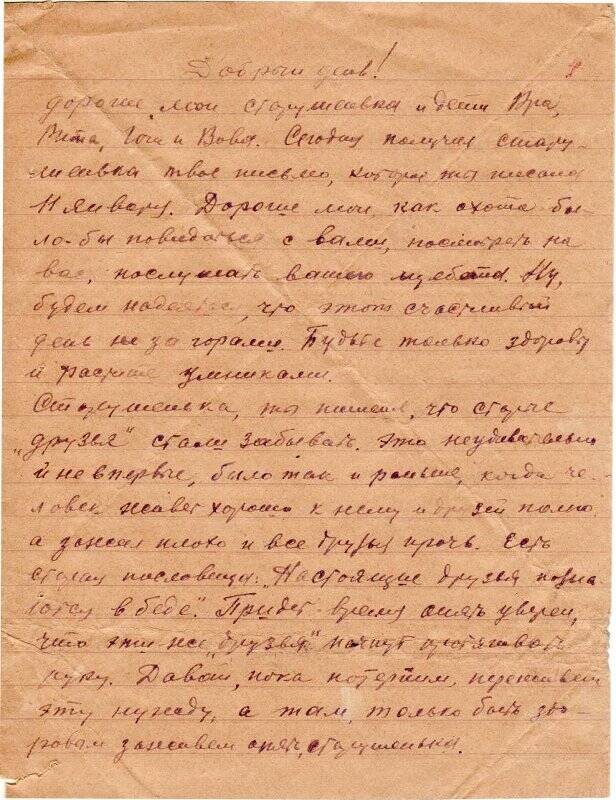 Добрый день!
дорогие мои старушенка и дети Ира,
Рита, Гоги и Вова. Сегодня получил стару-
шенка твое письмо, которое ты писала
11 января. Дорогие мои, как охота бы-
ло-бы повидаться с вами, посмотреть на
вас, послушать вашего щебета. Ну,
будем надеяться, что этот счастливый
день не за горами. Будьте только здоровы
и растите умниками.
Старушенька, ты пишешь, что старые
"друзья" стали забывать. Это неудивительно
и не впервые, было так и раньше, когда че-
ловек живет хорошо к нему и друзей полно,
а зажил плохо и все друзья прочь. Есть
старая пословица: "Настоящие друзья позна
ются в беде". Придет время опять уверен,
что эти же "друзья" начнут протягивать
руку. Давай, пока потерпим, переживем
эту нужду, а там, только быть здо-
ровым заживем опять, старушенька.